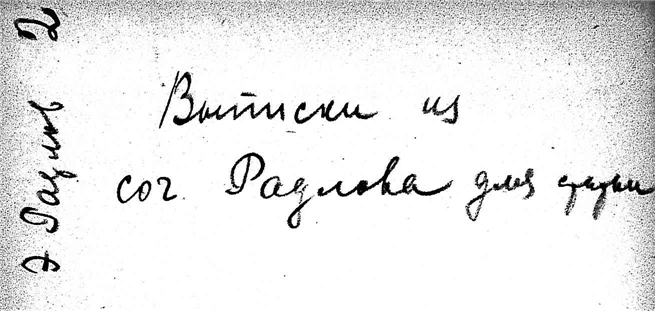 Выписки из
соч. Радлова для
Э Радлов 2